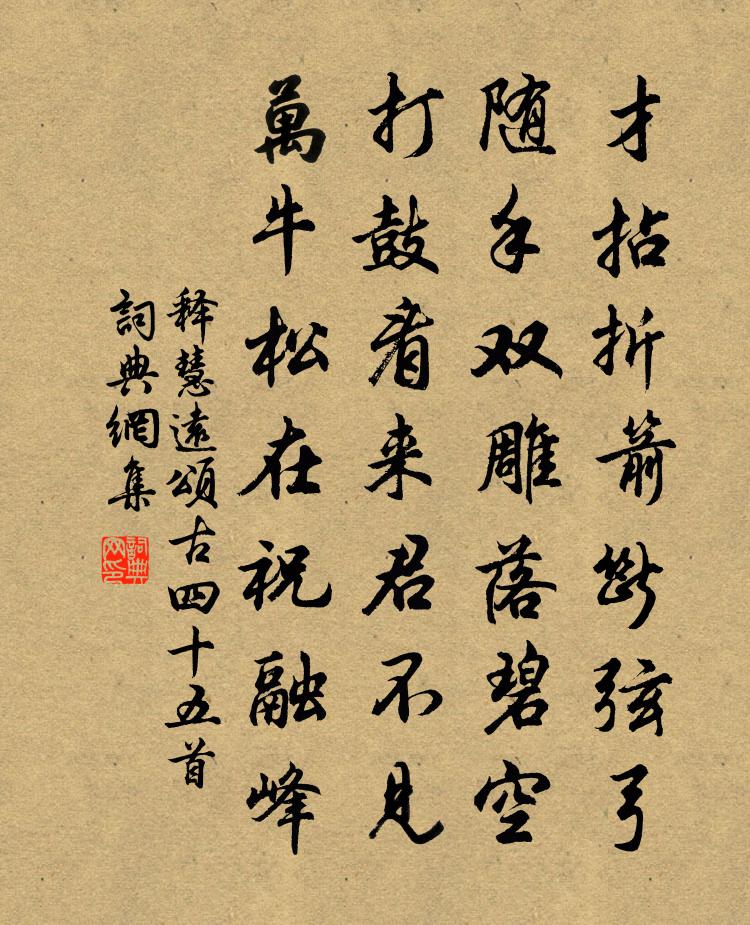 才拈折箭断弦弓
随手双雕落碧空
打鼓看来君不见
萬牛松在祝融峰
释慧遠頌古四十五首
詞典網集
詞典网印